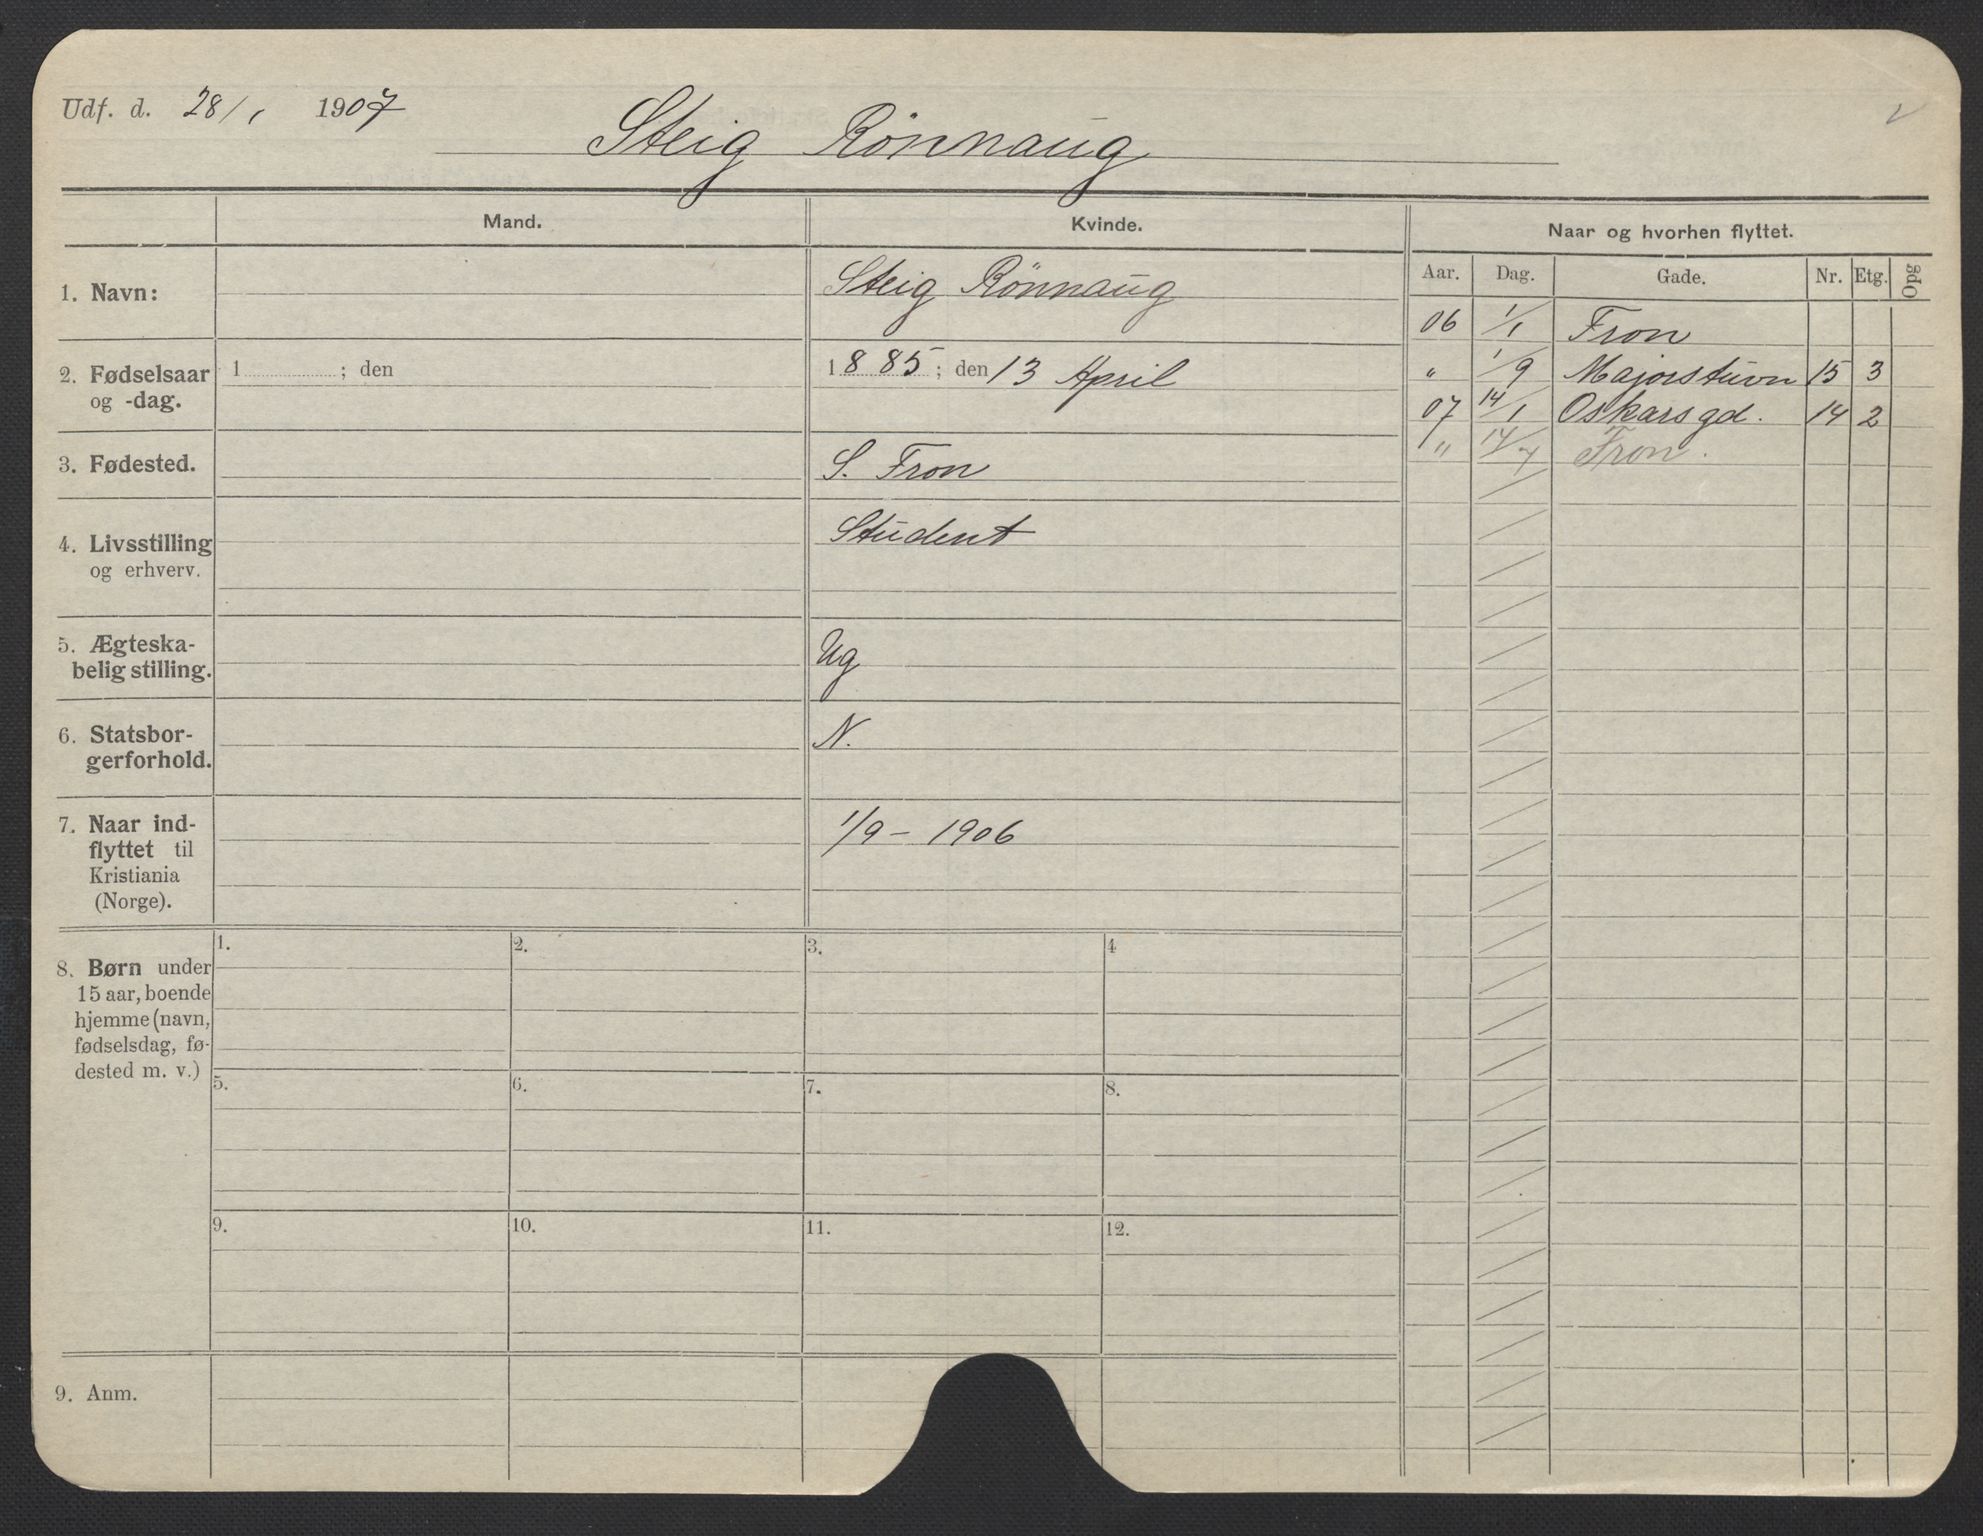 Udf. d. 28/1 1907
Steig Rönnaug
Mand.
Kvinde.
Naar og hvorhen flyttet.
Aar. Dag. Gade. Nr. Etg. Opg
1. Navn:
Steig Rönnaug
06 1/1 Fron
2. Fødselsaar
og -dag.
1 ; den
1885; den 13 April
" 1/9 Majorstuvn 15 3
07 14/1 Oskarsgd. 14 2
" 14/7 Fron.
3. Fødested.
S. Fron
4. Livsstilling
og erhverv.
Student
5. Ægteska-
belig stilling.
Ug
6. Statsbor-
gerforhold.
N.
7. Naar ind-
flyttet til
Kristiania
(Norge).
1/9 - 1906
8. Børn under
15 aar, boende
hjemme (navn,
fødselsdag, fø-
dested m. v.)
1. 2. 3. 4
5. 6. 7. 8.
9. 10. 11. 12.
9. Anm.